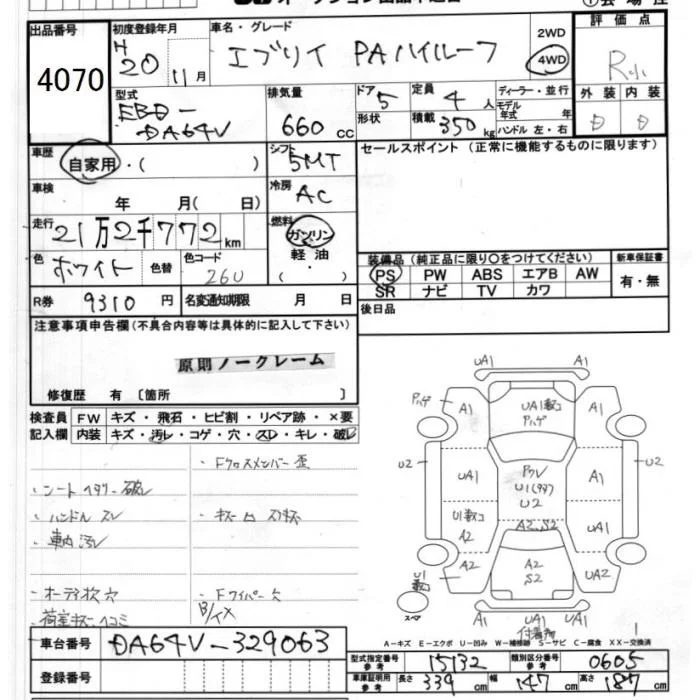 出品番号 初度登録年月 車名・グレード 2WD 評価点
4070 H20 11月 エブリイ PAハイルーフ 4WD R小
型式 排気量 ドア 定員 ディーラー・並行 外装 内装
EBD-DA64V 660cc 5 4人 モデル年式 年 D D
形状 積載 350kg ハンドル 左・右
車歴 自家用・( ) シフト 5MT セールスポイント (正常に機能するものに限ります)
車検 年 月( 日) 冷房 AC
走行 21万2千772km 燃料 ガソリン
軽油
・( )
色 ホワイト 色替 色コード 26U
装備品 (純正品に限り○をつけてください) 新車保証書
PS PW ABS エアB AW 有・無
SR ナビ TV カワ
R券 9310円 名変通知期限 月 日 後日品
注意事項申告欄(不具合内容等は具体的に記入して下さい)
原則ノークレーム
修復歴 有 〔箇所 〕
検査員 FW キズ・飛石・ヒビ割・リペア跡・×要
記入欄 内装 キズ・汚レ・コゲ・穴・スレ・キレ・破レ
・シートヘタリ・破レ
・ハンドルスレ
・車内汚レ
・オーディオ穴
荷室キズ・ヘコミ
・Fクロスメンバー歪
・Fワイパー欠
UA1 A1
Pハゲ A1 UA1 Pハゲ A1
U2 UA1 A1 U2
U2
A2 A2、S2 UA1
A2 A2 S2 UA2
U1
スペア A1 UA1 UA1
A-キズ E-エクボ U-凹み W-補修跡 S-サビ C-腐食 XX-交換済
車台番号 DA64V-329063
登録番号
型式指定番号 参考 15132 類別区分番号 参考 0605
車庫証明用 参考 長さ 339cm 幅 147cm 高さ 187cm